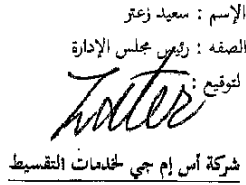 الإسم : سعيد زعتر
الصفه : رئيس مجلس الإدارة
لتوقيع :
شركة أس إم جي لخدمات التقسيط